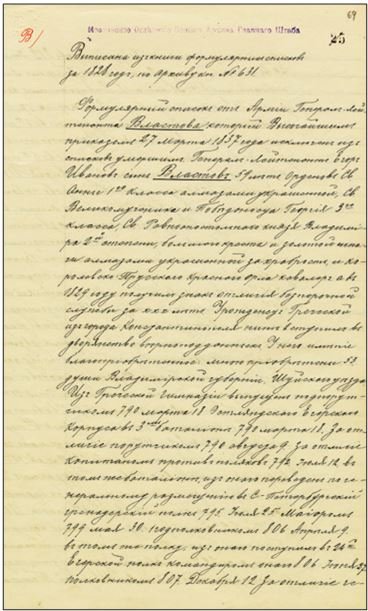 69
В/
Московское Отдѣленіе Общаго Архива Главнаго Штаба
25
Выписана изъ книги формулярныхъ списковъ
за 1828 годъ, по Архиву за № 631.
Формулярный списокъ отъ Арміи Генералъ-Лей-
тенанта Властова который Высочайшимъ
приказомъ 27 Марта 1837 года исключенъ изъ
списковъ умершимъ Генералъ-Лейтенантъ Егоръ
Ивановъ сынъ Властовъ, лѣтъ Орденовъ Св.
Анны 1го класса алмазами украшенной, Св.
Великомученика и Побѣдоносца Георгія 3го
класса, Св. Равноапостольнаго князя Владимі-
ра 2й степени, большаго креста и золотой шпа-
ги алмазами украшенной за храбрость и ко-
ролевско Прусскаго Краснаго орла кавалеръ а въ
1829 году получилъ знакъ отличія безпорочной
службы за лѣтъ Урожденецъ Греческой
изъ города Константинополя нынѣ вступилъ въ
дворянство
благопріобрѣтенное 58
души Владимірской губерніи, Шуйскаго уѣзда
Изъ Греческой гимназіи выпущенъ подпору-
чикомъ 790 марта 18. Эстляндскаго Егерскаго
Корпуса въ 3й баталіонъ 790 марта 18. За от-
личіе поручикомъ 790 августа 9. За отличіе
капитаномъ противъ поляковъ 792 Іюля 12. въ
томъ же баталіонѣ, изъ онаго переведенъ по ге-
неральному размещенію въ С-Петербургскій
гренадерскій полкъ 795. Іюля 25. Маіоромъ
799 мая 30. подполковникомъ 806 Апрѣля 9.
въ томъ же полку, изъ онаго поступилъ въ 24й
Егерской полкъ командиромъ онаго 806 Іюня 27
полковникомъ 807. Декабря 12. За отличіе ге-